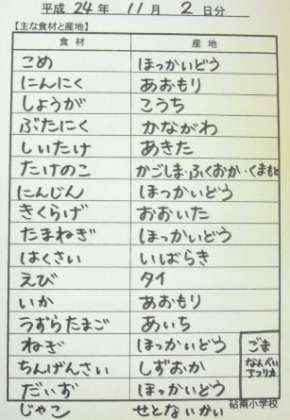 平成 24年 11月 2日分
【主な食材と産地】
食材 産地
こめ ほっかいどう
にんにく あおもり
しょうが こうち
ぶたにく かながわ
しいたけ あきた
たけのこ かごしま・ふくおか・くまもと
にんじん ほっかいどう
きくらげ おおいた
たまねぎ ほっかいどう
はくさい いばらき
えび タイ
いか あおもり
うずらたまご あいち
ねぎ ほっかいどう
ちんげんさい しずおか
だいず ほっかいどう
じゃこ せとないかい
ごま
なんべい
アフリカ
砧南小学校